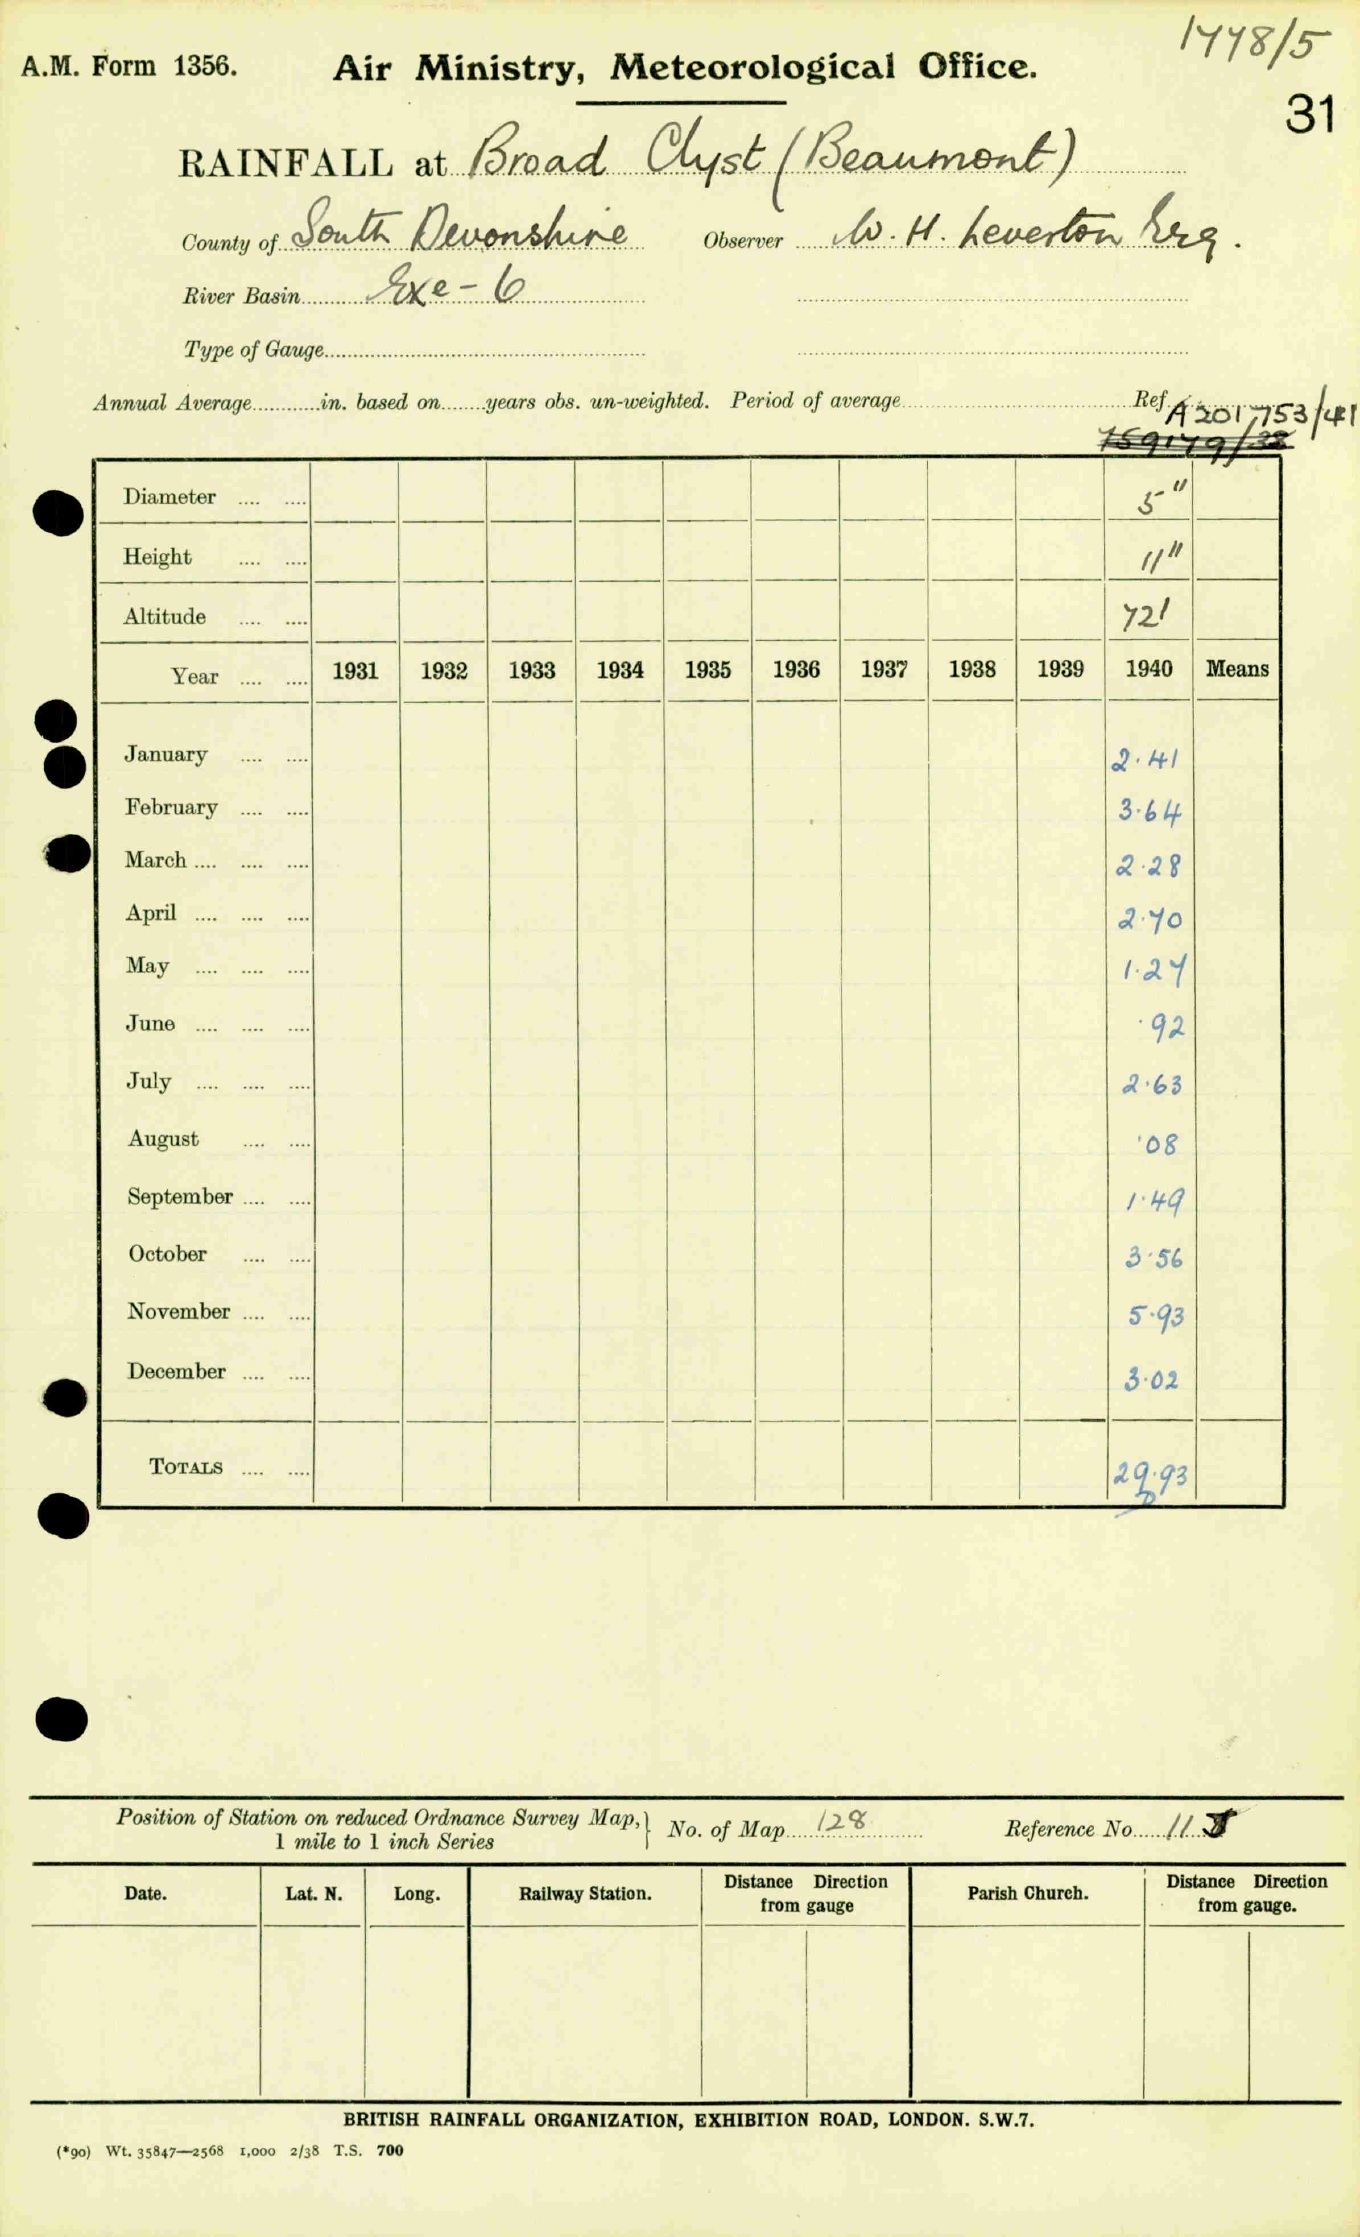 1778/5
A.M. Form 1356. Air Ministry, Meteorological Office.
31
RAINFALL at Broad Clyst (Beaumont)
County of South Devonshire Observer W. H. Leverton Esq.
River Basin Exe - 6
Type of Gauge
Annual Average in. based on years obs. un-weighted. Period of average Ref A201753/41
159179/38
Diameter .... .... 5"
Height .... .... 11"
Altitude .... .... 72'
Year .... .... 1931 1932 1933 1934 1935 1936 1937 1938 1939 1940 Means
January .... .... 2.41
February .... .... 3.64
March .... .... .... 2.28
April .... .... .... 2.70
May .... .... .... 1.27
June .... .... .... .92
July .... .... .... 2.63
August .... .... .08
September .... .... 1.49
October .... .... 3.56
November .... .... 5.93
December .... .... 3.02
TOTALS .... .... 29.93
Position of Station on reduced Ordnance Survey Map, 1 mile to 1 inch Series } No. of Map 128 Reference No. 11
Date. Lat. N. Long. Railway Station. Distance Direction from gauge Parish Church. Distance Direction from gauge.
BRITISH RAINFALL ORGANIZATION, EXHIBITION ROAD, LONDON. S.W.7.
(*90) Wt. 35847—2568 1,000 2/38 T.S. 700